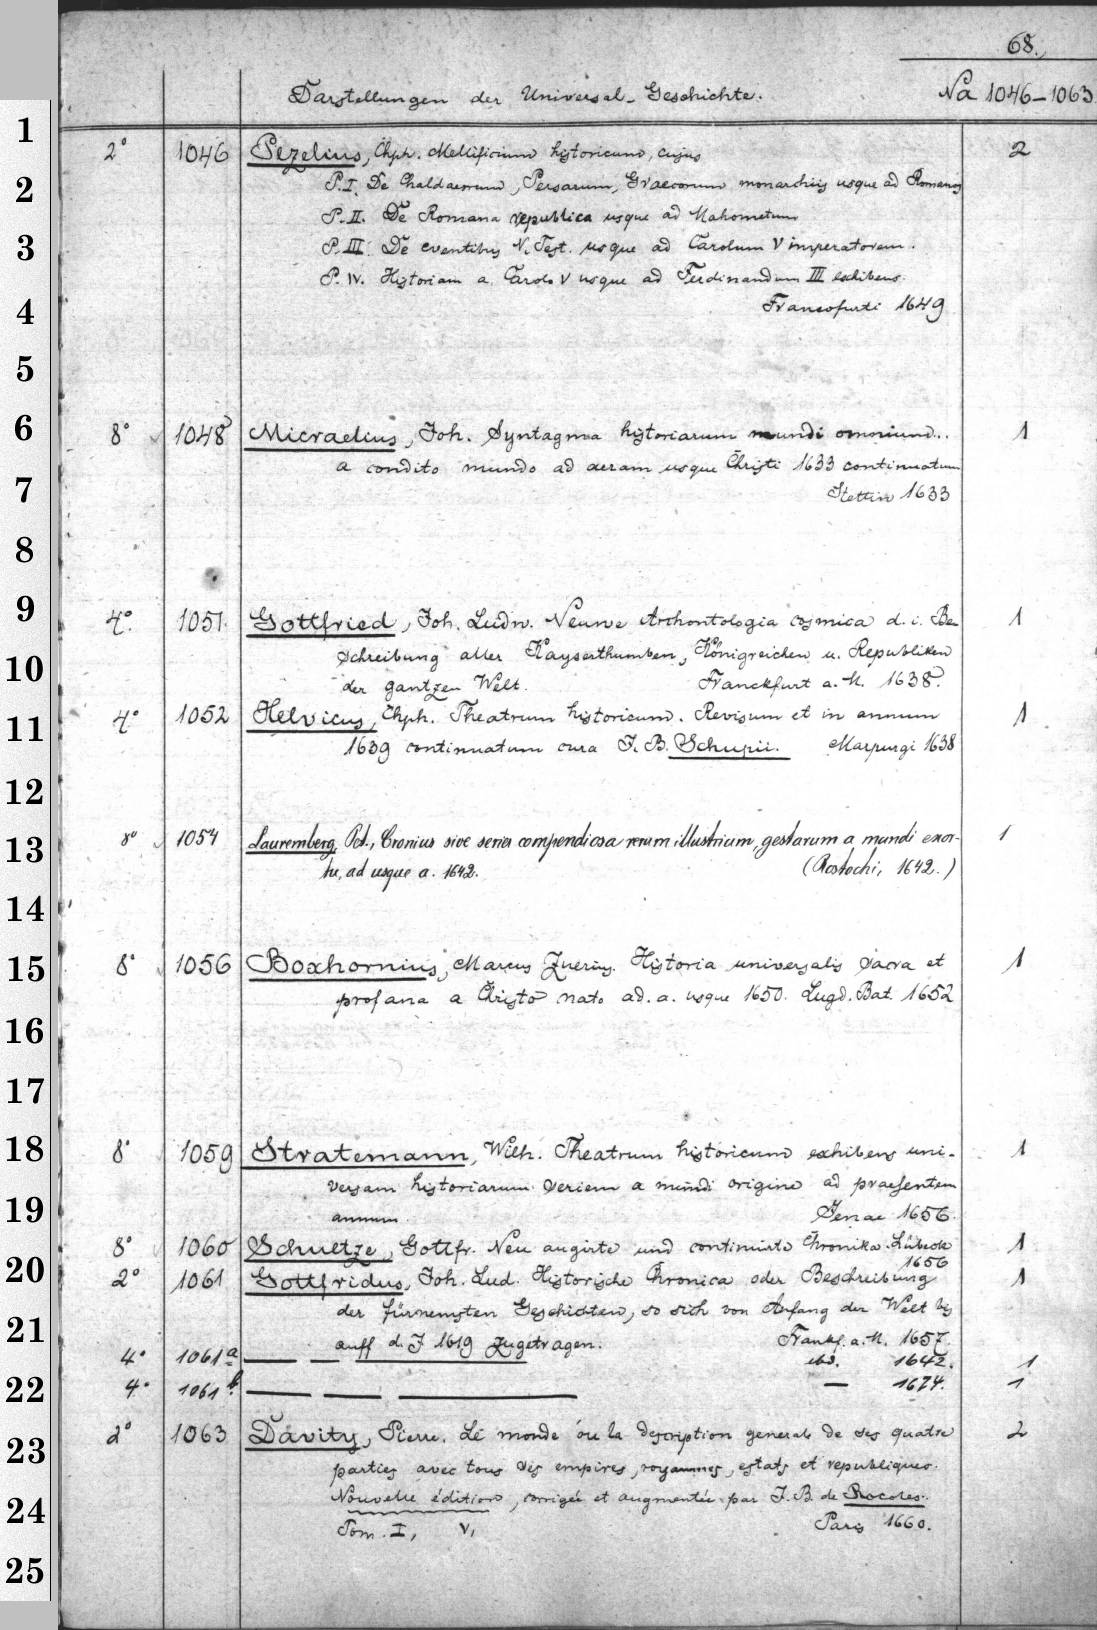 68.
Darstellungen der Universal-Geschichte. Na 1046-1063
1
2° 1046 Pezelius, Chph. Mellificium historicum, cujus 2
2 P. I. De Chaldaeorum, Persarum, Graecorum monarchiis usque ad Romanos
P. II. De Romana republica usque ad Mahometum
3 P. III. De eventibus N. Test. usque ad Carolum V imperatorem.
P. IV. Historiam a Carolo V usque ad Ferdinandum III exhibens.
4 Francofurti 1649
5
6 8° 1048 Micraelius, Joh. Syntagma historiarum mundi omnium.. 1
a condito mundo ad aeram usque Christi 1633 continuatum
7 Stettin 1633
8
9 4° 1051. Gottfried, Joh. Ludw. Neuwe Archontologia cosmica d. i. Be- 1
10 schreibung aller Kayserthumben, Königreichen u. Republiken
der gantzen Welt. Franckfurt a. M. 1638.
11 4° 1052 Helvicus, Chph. Theatrum historicum. Revisum et in annum 1
1639 continuatum cura J. B. Schupii. Marpurgi 1638
12
13 8° 1054 Lauremberg, Pet., Cronius sive series compendiosa rerum illustrium, gestarum a mundi exor- 1
tu, ad usque a. 1642. (Rostochi, 1642.)
14
15 8° 1056 Boxhornius, Marcus Zuerius. Historia universalis sacra et 1
profana a Christo nato ad. a. usque 1650. Lugd. Bat. 1652
16
17
18 8° 1059 Stratemann, Wilh. Theatrum historicum exhibens uni- 1
versam historiarum seriem a mundi origine ad praesentem
19 annum. Jenae 1656.
8° 1060 Schultze, Gottfr. Neu augirte und continuirte Chronika. Lübeck 1
1656
20 2° 1061 Gottfridus, Joh. Lud. Historische Chronica oder Beschreibung 1
der fürnemsten Geschichten, so sich von Anfang der Welt bis
21 auff d. J 1619 zugetragen. Frankf. a. M. 1657.
4° 1061a — — — ebd. 1642. 1
22 4° 1061b — — — — 1674. 1
23 2° 1063 Davity, Pierre. Le monde ou la description general de ses quatre 2
parties avec tous ses empires, royaumes, estats et republiques.
24 Nouvelle édition, corrigée et augmentée par J. B. de Rocoles.
Tom. I, V, Paris 1660.
25